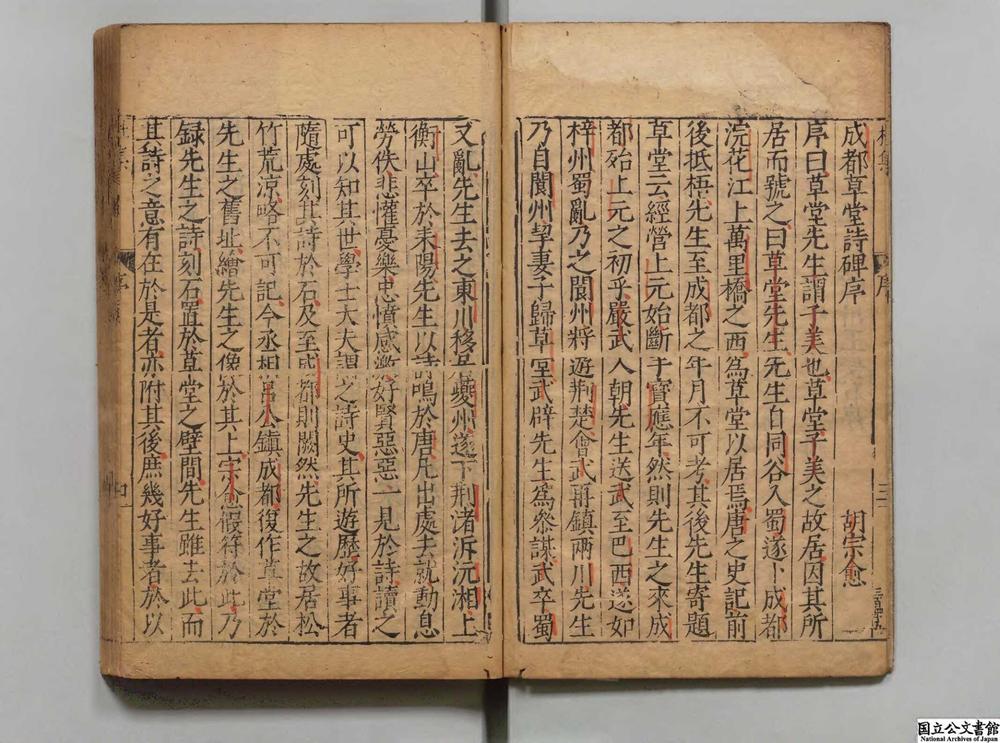 成都草堂詩碑序　胡宗愈
序曰草堂先生謂子美也草堂子美之故居因其所
居而號之曰草堂先生先生自同谷入蜀遂卜成都
浣花江上萬里橋之西為草堂以居焉唐之史記前
後抵梧先生至成都之年月不可考其後先生寄題
草堂云經營上元始斷于寶應年然則先生之來成
都殆上元之初乎嚴武入朝先生送武至巴西遂如
梓州蜀亂乃之閬州將遊荆楚會武再鎮兩川先生
乃自閬州挈妻子歸草堂武辟先生為叅謀武卒蜀
又亂先生去之東川移居夔州遂下荆渚泝沅湘上
衡山卒於耒陽先生以詩鳴於唐凡出處去就動息
勞佚悲懽憂樂忠憤感激好賢惡惡一見於詩讀之
可以知其世學士大夫謂之詩史其所遊歷好事者
隨處刻其詩於石及至成都則闕然先生之故居松
竹荒涼略不可記今丞相呂公鎮成都復作草堂於
先生之舊址繪先生之像於其上宗愈假符於此乃
録先生之詩刻石置於草堂之壁間先生雖去此而
其詩之意有在於是者亦附其後庶幾好事者於以
国立公文書館
National Archives of Japan